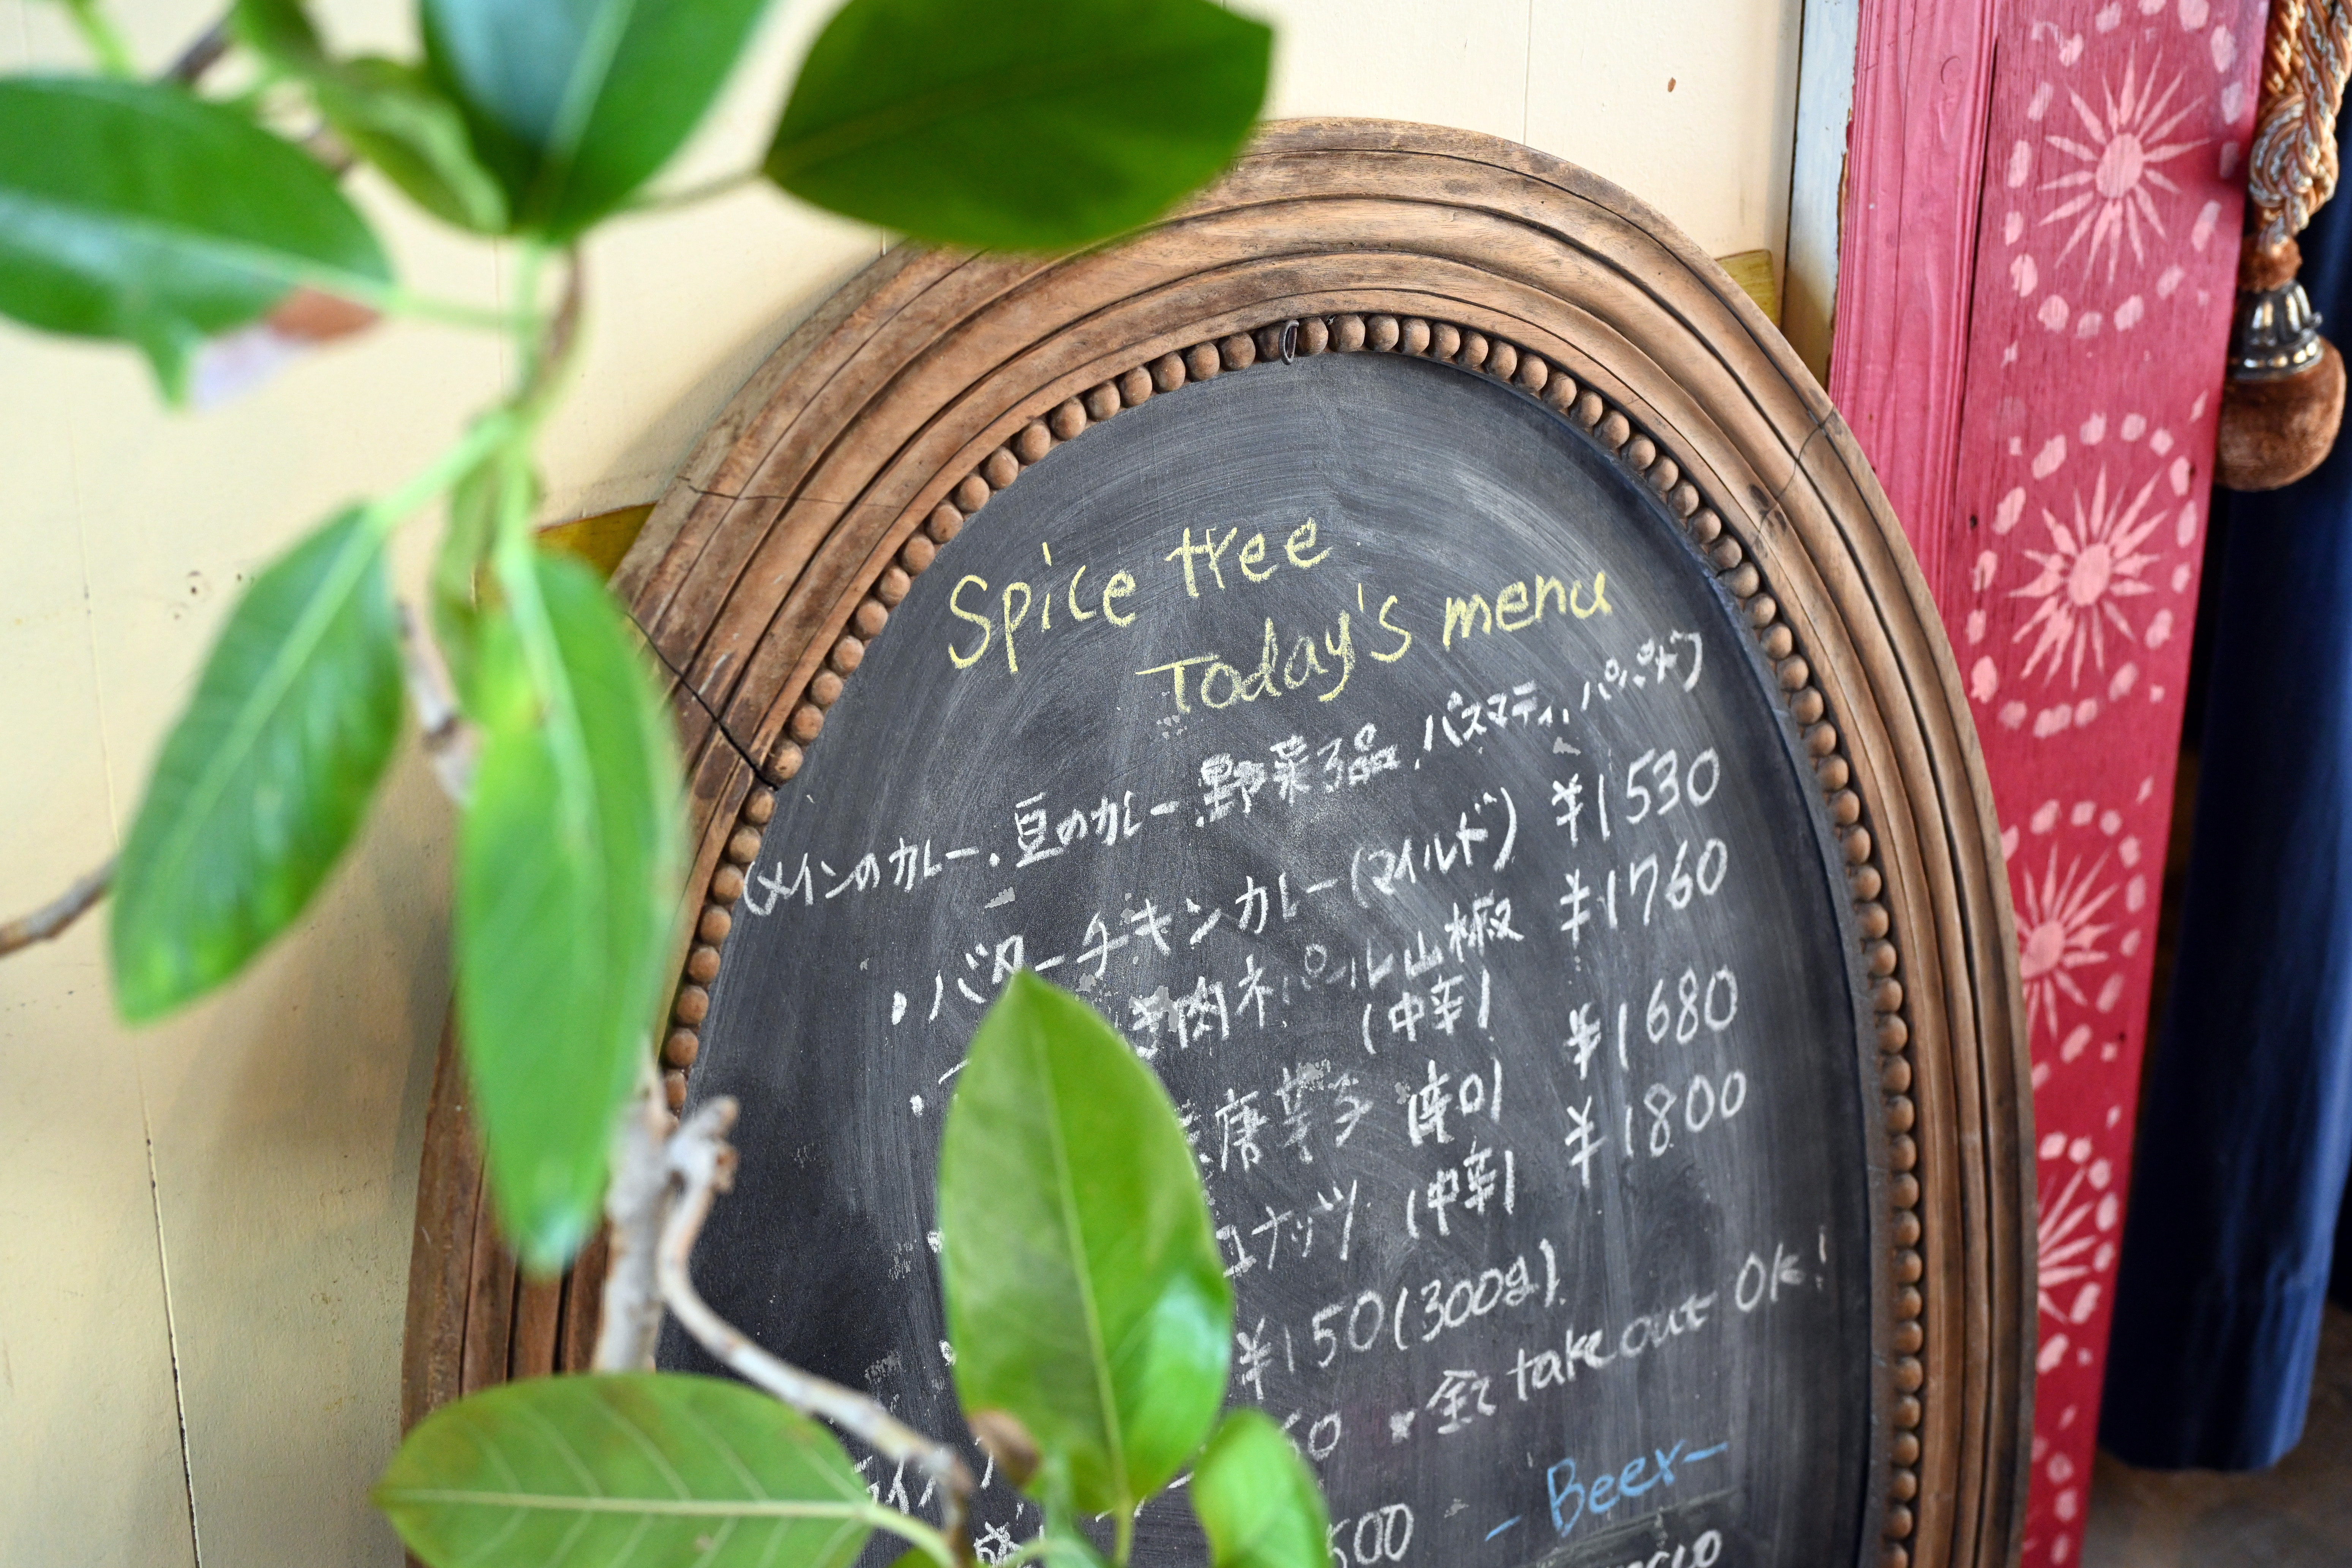 Spice tree
Today's menu
(メインのカレー.豆のカレー.野菜3品.バスマティ.パパド)
・バターチキンカレー(マイルド) ¥1530
き肉ネパール山椒 ¥1760
(中辛)
唐辛子 (辛口) ¥1680
ナッツ (中辛) ¥1800
¥150(300g)
全て take out OK!
500
-Beer-